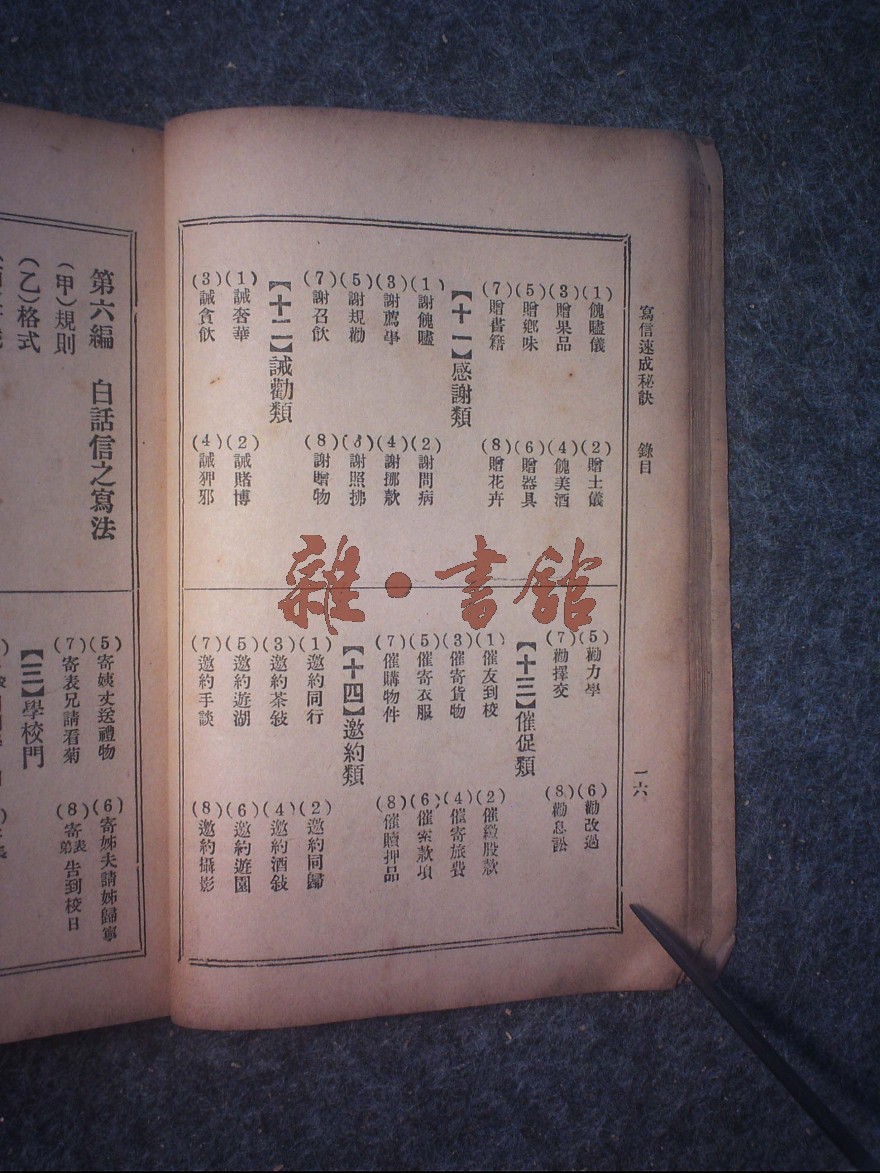 寫信速成秘訣 錄目 一六
(1)餽贐儀
(2)贈土儀
(3)贈果品
(4)餽美酒
(5)贈鄉味
(6)贈器具
(7)贈書籍
(8)贈花卉
【十一】感謝類
(1)謝餽贐
(2)謝問病
(3)謝薦事
(4)謝挪款
(5)謝規勸
(6)謝照拂
(7)謝召飲
(8)謝贈物
【十二】誡勸類
(1)誡奢華
(2)誡賭博
(3)誡貪飲
(4)誡狎邪
(5)勸力學
(6)勸改過
(7)勸擇交
(8)勸息訟
【十三】催促類
(1)催友到校
(2)催繳股款
(3)催寄貨物
(4)催寄旅費
(5)催寄衣服
(6)催索款項
(7)催購物件
(8)催贖押品
【十四】邀約類
(1)邀約同行
(2)邀約同歸
(3)邀約茶敍
(4)邀約酒敍
(5)邀約遊湖
(6)邀約遊園
(7)邀約手談
(8)邀約攝影
第六編 白話信之寫法
(甲)規則
(乙)格式
(5)寄姨丈送禮物
(6)寄姊夫請姊歸寧
(7)寄表兄請看菊
(8)寄表弟告到校日
【三】學校門
雜·書館